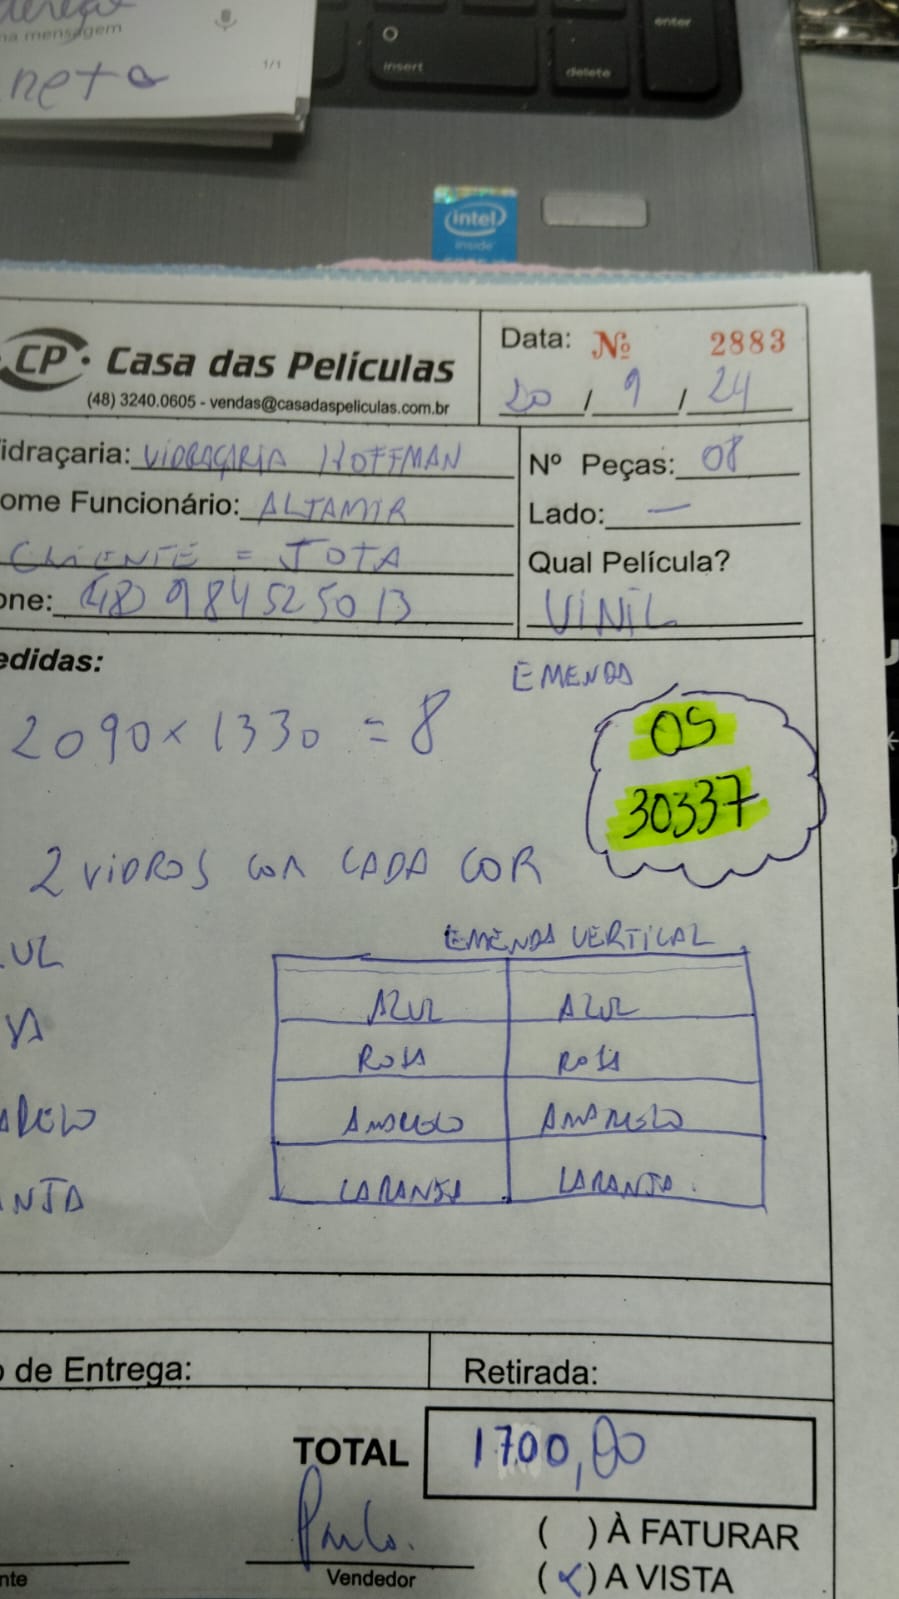 na mensagem
1/1
neta
insert
delete
enter
intel
inside
CP · Casa das Películas
(48) 3240.0605 - vendas@casadaspeliculas.com.br
Data: Nº 2883
20 / 9 / 24
idraçaria: VIDRAÇARIA HOFFMAN
Nº Peças: 08
ome Funcionário: ALTAMIR
Lado: —
CLIENTE = JOTA
Qual Película?
one: (48) 984525013
VINIL
edidas:
EMENDA
2090 x 1330 = 8
OS
30337
2 VIDROS COM CADA COR
EMENDA VERTICAL
UL
AZUL AZUL
SA
ROSA ROSA
ARELO
AMARELO AMARELO
ANJA
LARANJA LARANJA.
o de Entrega:
Retirada:
TOTAL 1700,00
Paulo.
( ) À FATURAR
nte
Vendedor
(x) A VISTA